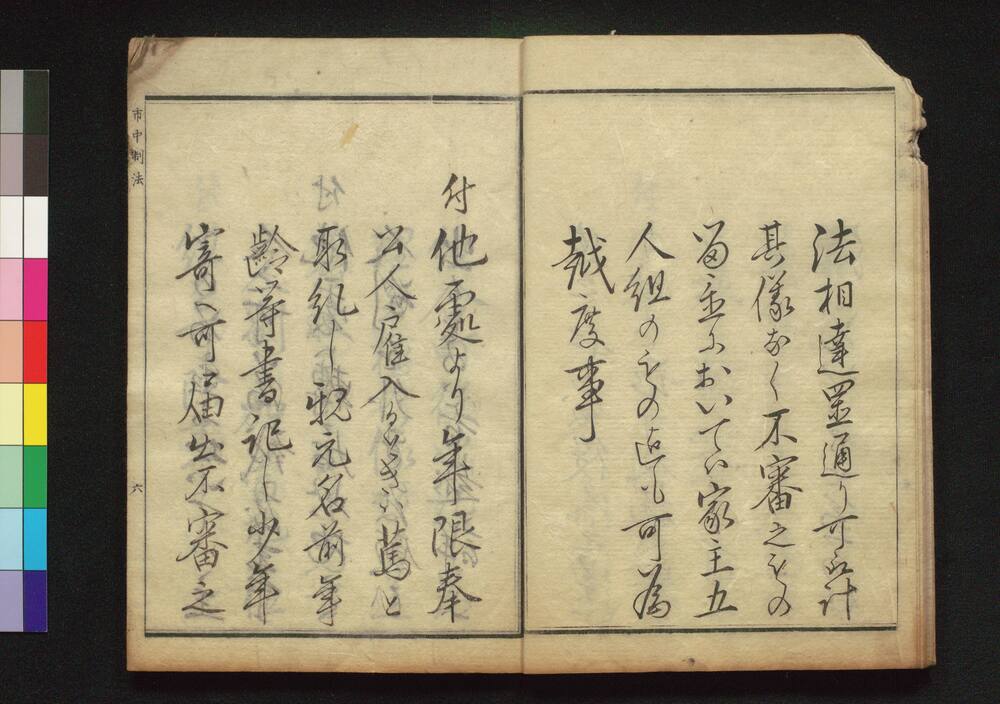 法相達置通り可取計
其儀なく不審之もの
留置においてハ家主五
人組のもの迄も可為
越度事
付他処より年限奉
公人雇入るゝときハ篤と
取糺し親元名前年
齢等書記し少年
寄へ可届出不審之
市中制法
六